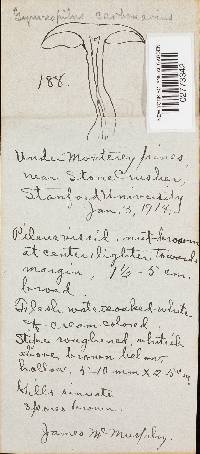 188.
02773342
Under Monterey pines,
near Stone Crusher,
Stanford University
Jan. 3, 1918.
Pileus viscid, nut-brown
at center, lighter toward
margin, 1½-5 cm.
broad.
Flesh water-soaked-white
cream colored.
Stipe roughened, whitish
above brown below,
hollow, 5-10 mm x 2-5 cm
Gills sinuate
spores brown.
James McMurphy